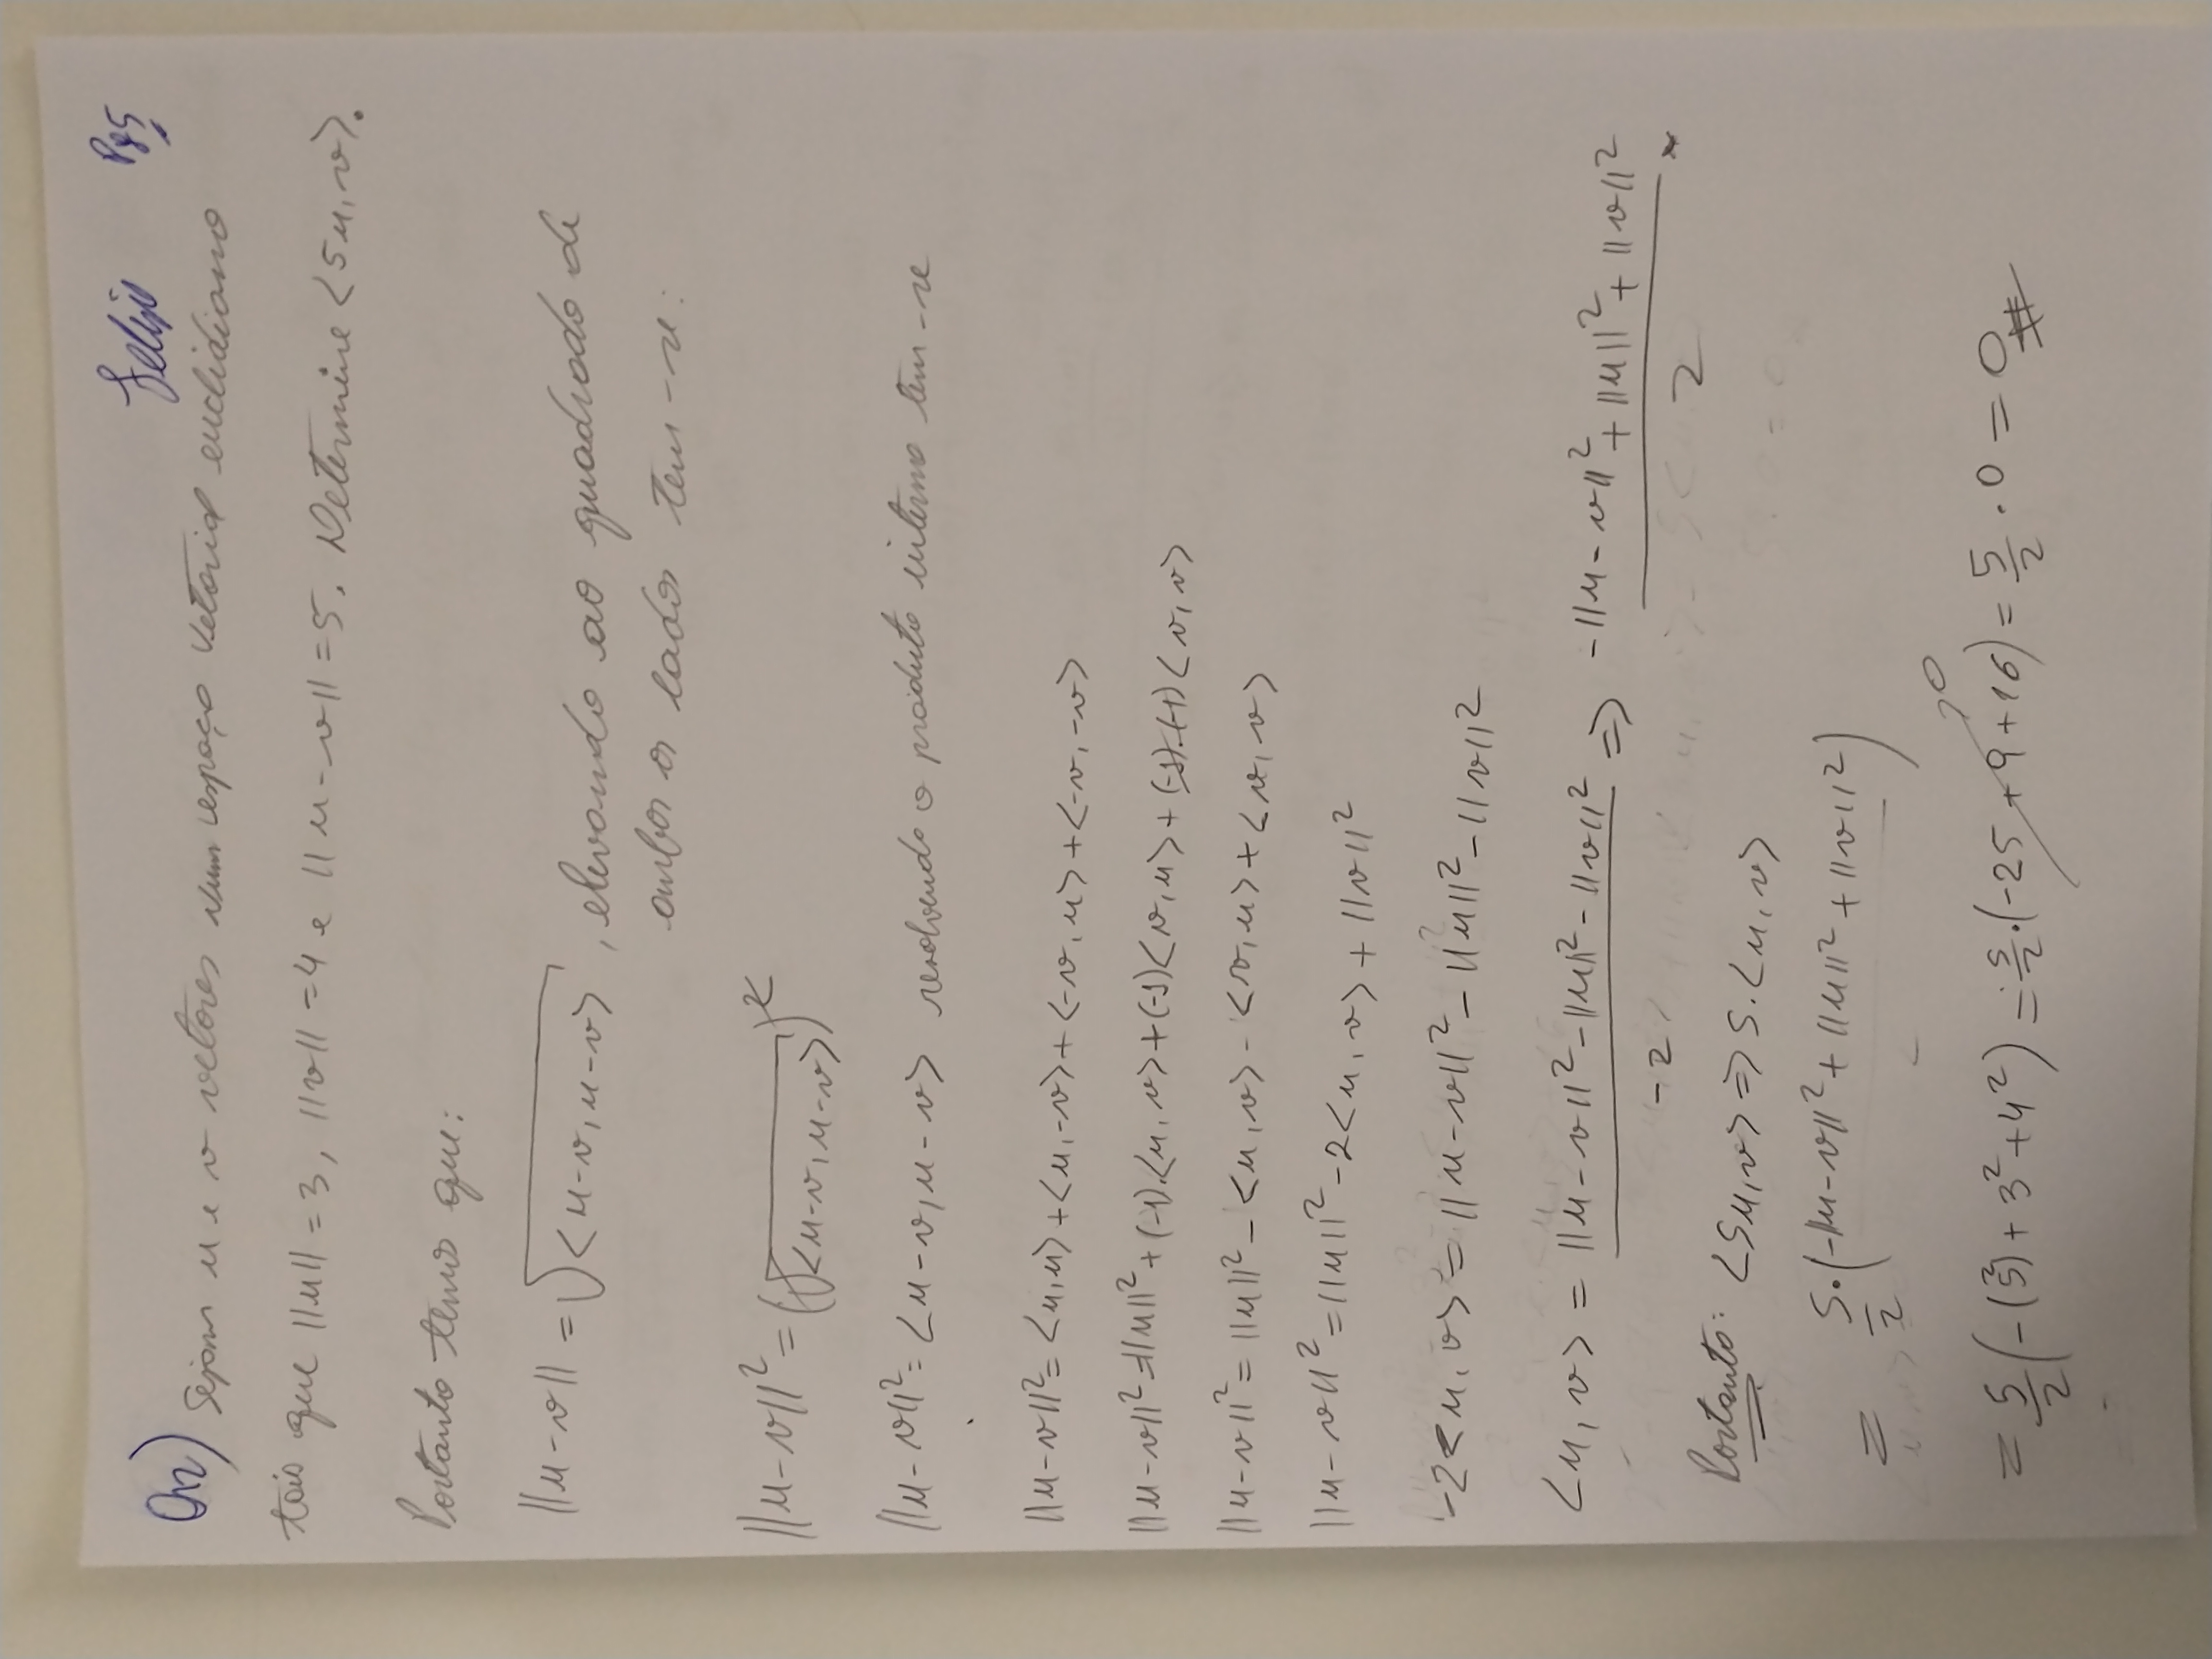 Felipe Pg5
Q12) Sejam u e v vetores num espaço vetorial euclidiano
tais que ||u|| = 3, ||v|| = 4 e ||u - v|| = 5. Determine <5u, v>.
Portanto temos que:
||u - v|| = √<u-v, u-v> , elevando ao quadrado de
ambos os lados tem-se:
||u - v||² = (√<u-v, u-v>)²
||u - v||² = <u - v, u - v> resolvendo o produto interno tem-se
||u - v||² = <u,u> + <u,-v> + <-v,u> + <-v,-v>
||u - v||² = ||u||² + (-1).<u, v> + (-1)<v, u> + (-1).(-1)<v, v>
||u - v||² = ||u||² - <u, v> - <v, u> + <v, v>
||u - v||² = ||u||² - 2<u, v> + ||v||²
-2<u, v> = ||u - v||² - ||u||² - ||v||²
<u, v> = (||u - v||² - ||u||² - ||v||²)/-2 => (-||u - v||² + ||u||² + ||v||²)/2
Portanto: <5u,v> => 5.<u, v>
= 5/2 . (-||u - v||² + ||u||² + ||v||²)
= 5/2 (-(5²) + 3² + 4²) = 5/2 . (-25 + 9 + 16)→0 = 5/2 . 0 = 0#